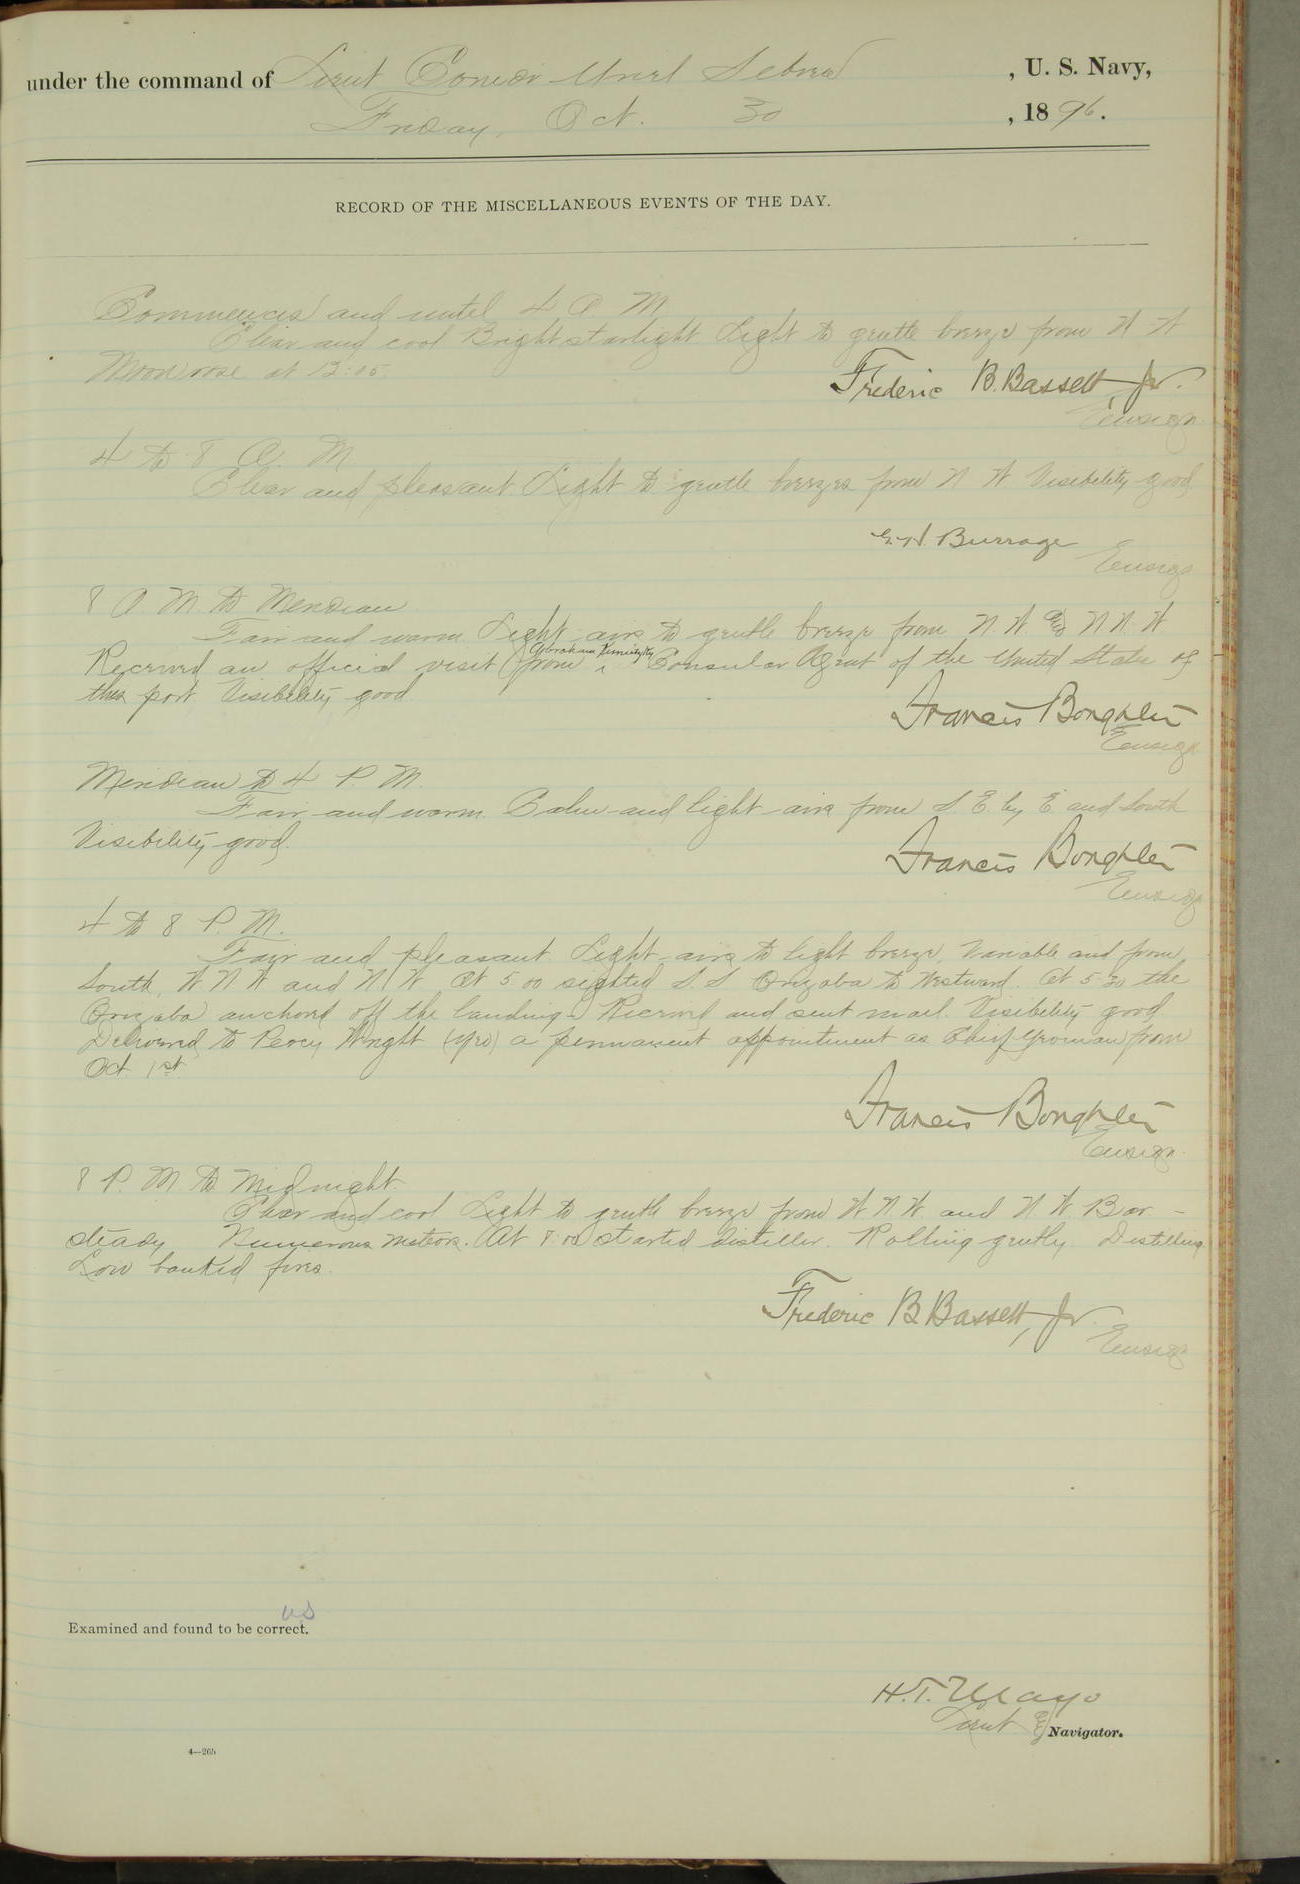 under the command of Lieut Comdr Uriel Sebree , U. S. Navy,
Friday, Oct. 30 , 1896.
RECORD OF THE MISCELLANEOUS EVENTS OF THE DAY.
Commences and until 4 A M
Clear and cool Bright starlight Light to gentle breeze from N W
Moon rose at
Frederic B. Bassett, Jr.
Ensign
4 to 8 A. M
Clear and pleasant Light to gentle breezes from N W Visibility good
G. H. Burrage
Ensign
8 A M. to Meridian
Fair and warm Light airs to gentle breeze from N. W. & N N. W
Abraham
Received an official visit from ‸ Consular Agent of the United State of
this port Visibility good
Francis Boughter
Ensign
Meridian to 4 P. M.
Fair and warm Calm and light airs from S. E. by E and South
Visibility good.
Francis Boughter
Ensign
4 to 8 P. M.
Fair and pleasant Light airs to light breeze, Variable and from
South, W N W and N W. At 5 00 sighted S. S Orizaba to Westward. At 5 30 the
Orizaba anchord off the landing. Received and sent mail. Visibility good
Delivered to Percy Wright (Yeo) a permanent appointment as Chief Yeoman from
Oct 1st
Francis Boughter
Ensign
8 P. M to Midnight
Clear and cool Light to gentle breeze from W. N. W. and N W. Bar -
steady Numerous meteors. At 8:00 started distiller. Rolling gently Distilling
Low banked fires.
Frederic B Bassett, Jr.
Ensign
US
Examined and found to be correct.
H. T. Mayo
Lieut & Navigator.
4—265